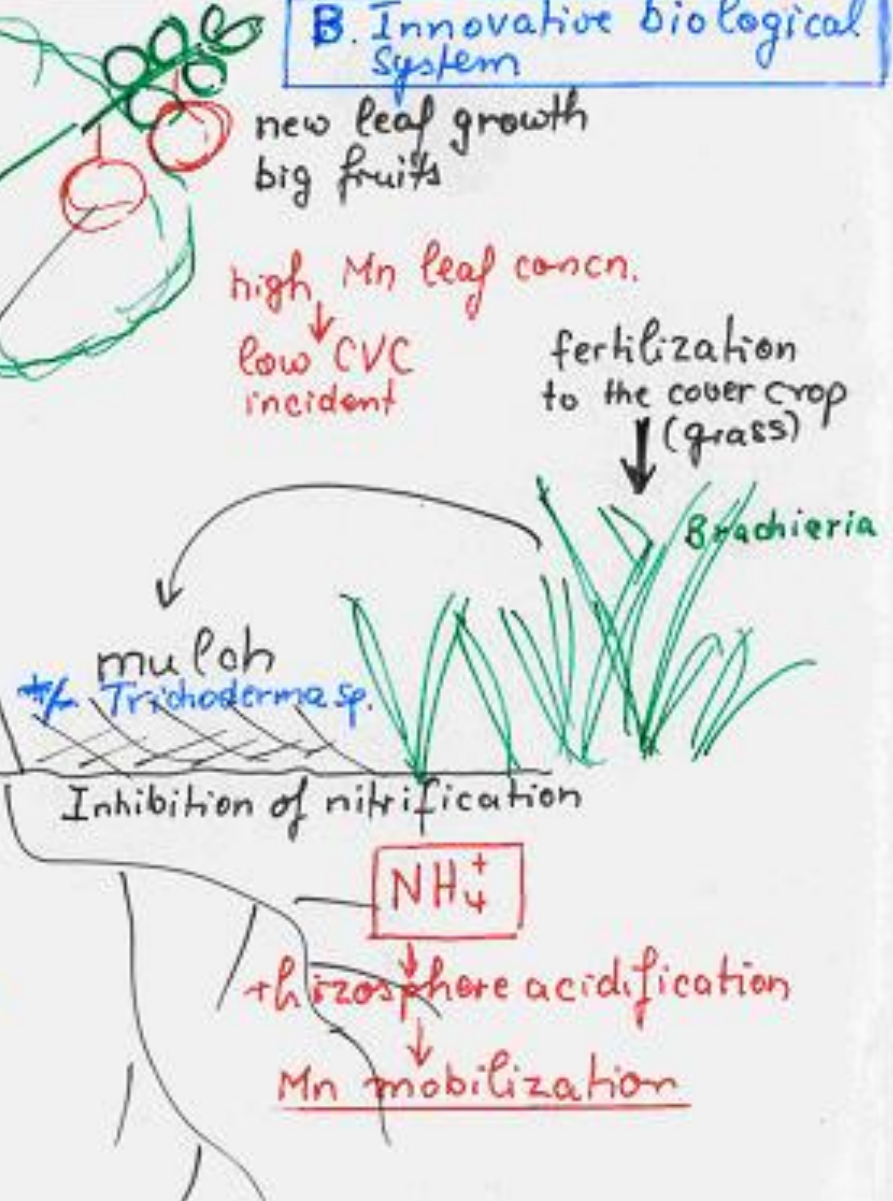 B. Innovative biological
system
new leaf growth
big fruits
high Mn leaf concn.
low CVC
incident
fertilization
to the cover crop
(grass)
Brachieria
mulch
+/- Trichoderma sp.
Inhibition of nitrification
NH₄⁺
rhizosphere acidification
Mn mobilization